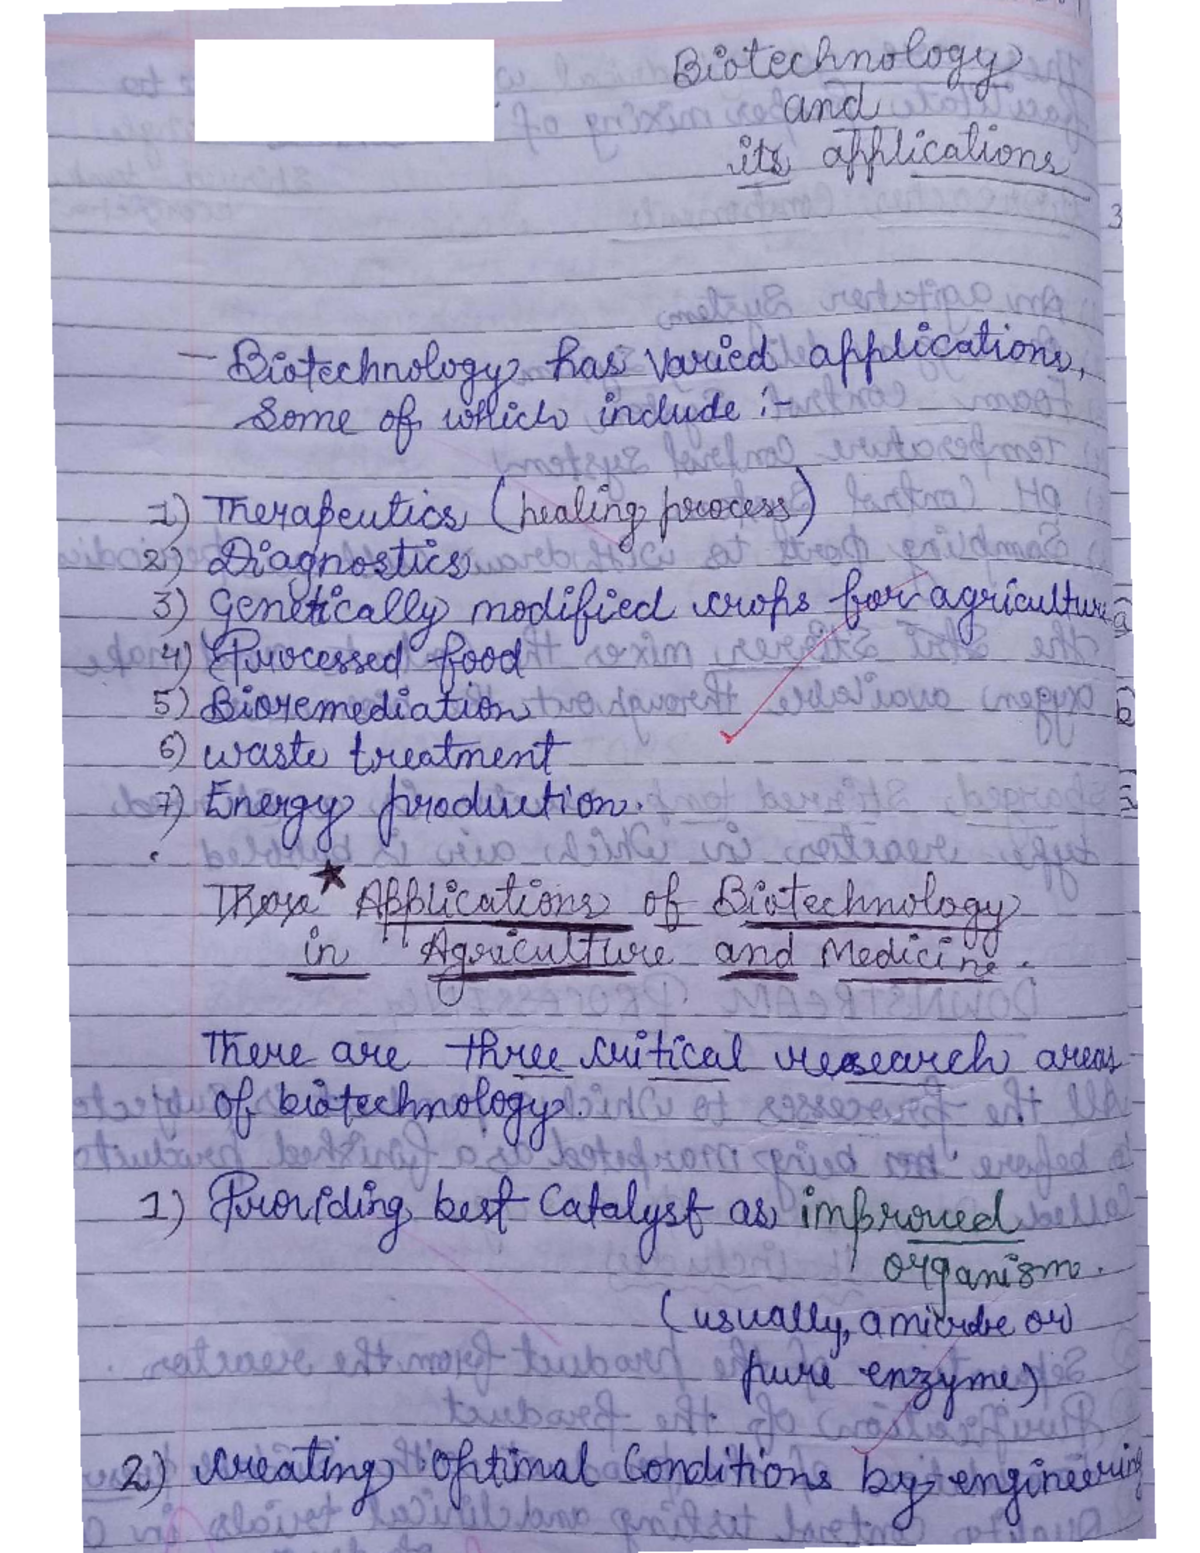 Biotechnology
and
its applications
- Biotechnology has varied applications,
Some of which include :-
1) Therapeutics (healing process)
2) Diagnostics
3) Genetically modified crops for agriculture
4) Processed food
5) Bioremediation
6) waste treatment
7) Energy production.
★ Applications of Biotechnology
in Agriculture and Medicine.
There are three critical research areas
of biotechnology.
1) Providing best Catalyst as improved
organism.
(usually, a microbe or
pure enzyme)
2) creating optimal Conditions by engineering